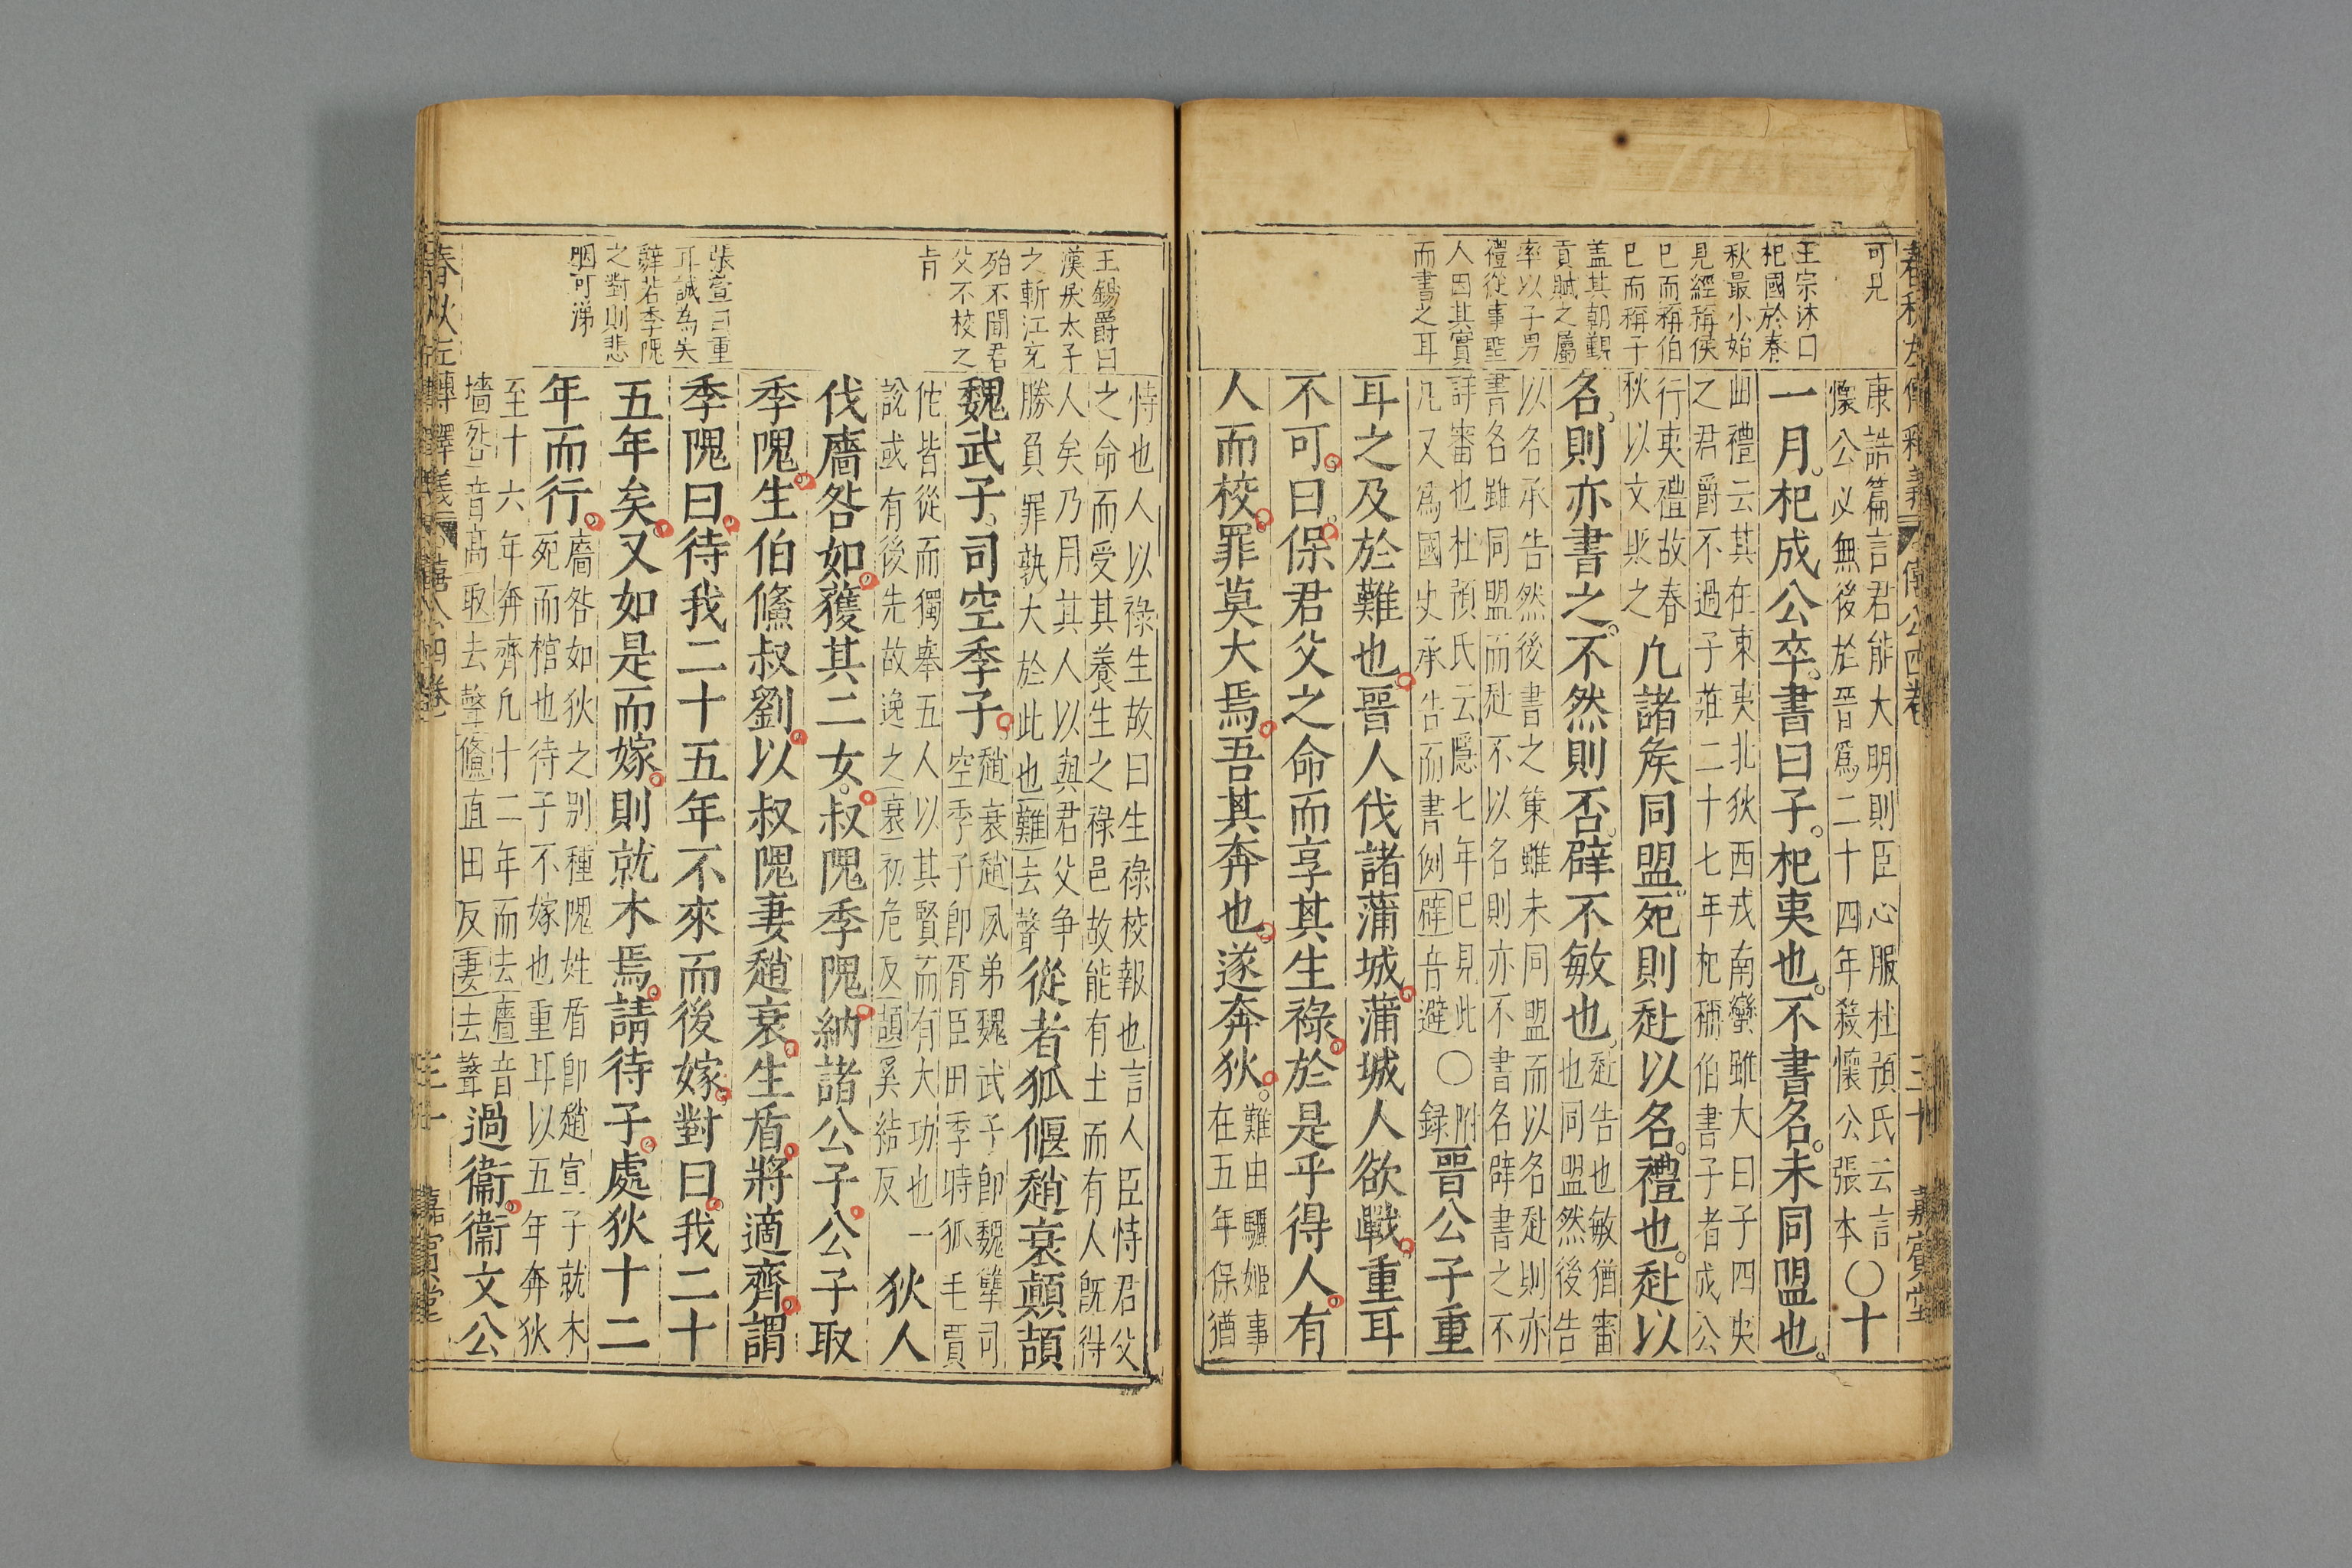 可見
王宗沐曰
杞國於春
秋最小始
見經稱侯
巳而稱伯
巳而稱子
盖其朝覲
貢賦之屬
率以子男
禮從事聖
人因其實
而書之耳
康誥篇言君能大明則臣心服杜預氏云言〇十
懷公必無後於晉爲二十四年殺懷公張本
一月杞成公卒書曰子杞夷也不書名未同盟也
曲禮云其在東夷北狄西戎南蠻雖大曰子四夷
之君爵不過子莊二十七年杞稱伯書子者成公
行夷禮故春
秋以文貶之
凡諸矦同盟死則赴以名禮也赴以
名則亦書之不然則否辟不敏也
赴告也敏猶審
也同盟然後告
以名承告然後書之策雖未同盟而以名赴則亦
書名雖同盟而赴不以名則亦不書名辟書之不
詳審也杜預氏云隱七年巳見此〇附
凡又爲國史承告而書例辟音避錄
晉公子重
耳之及於難也晉人伐諸蒲城蒲城人欲戰重耳
不可曰保君父之命而享其生祿於是乎得人有
人而校罪莫大焉吾其奔也遂奔狄
難由驪姬事
在五年保猶
春秋左傳釋義 僖公四卷 三十 嘉賓堂
王錫爵曰
漢戾太子
之斬江充
殆不聞君
父不校之
旨
張萱曰重
耳誠為失
辭若季隗
之對則悲
咽可涕
恃也人以祿生故曰生祿校報也言人臣恃君父
之命而受其養生之祿邑故能有土而有人旣得
人矣乃用其人以與君父争
勝負罪孰大於此也難去聲
從者狐偃趙衰顛頡
魏武子司空季子
趙衰趙夙弟魏武子卽魏犨司
空季子卽胥臣臼季時狐毛賈
佗皆從而獨舉五人以其賢而有大功也一
說或有後先故逸之衰初危反頡奚結反
狄人
伐廧咎如獲其二女叔隗季隗納諸公子公子取
季隗生伯儵叔劉以叔隗妻趙衰生盾將適齊謂
季隗曰待我二十五年不來而後嫁對曰我二十
五年矣又如是而嫁則就木焉請待子處狄十二
年而行
廧咎如狄之别種隗姓盾卽趙宣子就木
死而棺也待子不嫁也重耳以五年奔狄
至十六年奔齊凡十二年而去廧音
墻咎音高取去聲儵直由反妻去聲
過衞衞文公
春秋左傳釋義 僖公四卷 三十 嘉賓堂